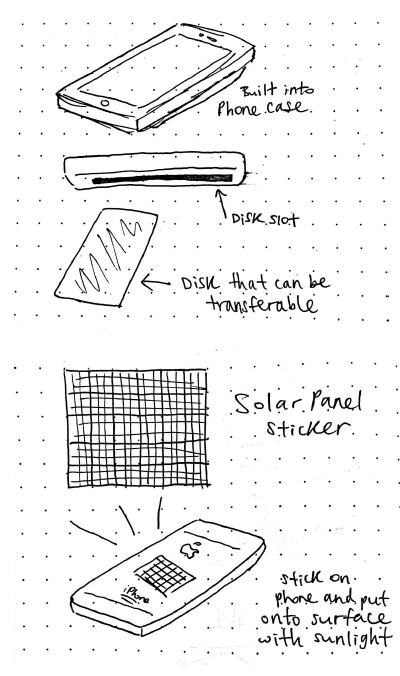 Built into
Phone case.
Disk slot
Disk that can be
transferable
Solar Panel
sticker.
iPhone
stick on
phone and put
onto surface
with sunlight